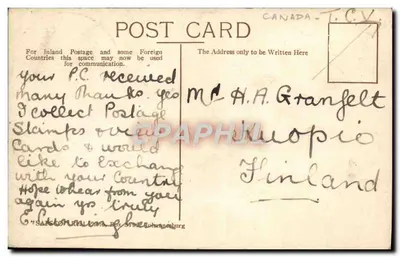 CANADA - T.C.V.
POST CARD
For Inland Postage and some Foreign
Countries this space may now be used
for communication.
The Address only to be Written Here
your P.C. received
many Thanks. yes
I collect Postage
Stamps & view
Cards & would
like to Exchan
with your Country
Hope to hear from you
again yrs truly
E Cunningham
Mr H.A. Granfelt
Kuopio
Finland
DELCAMPHIL